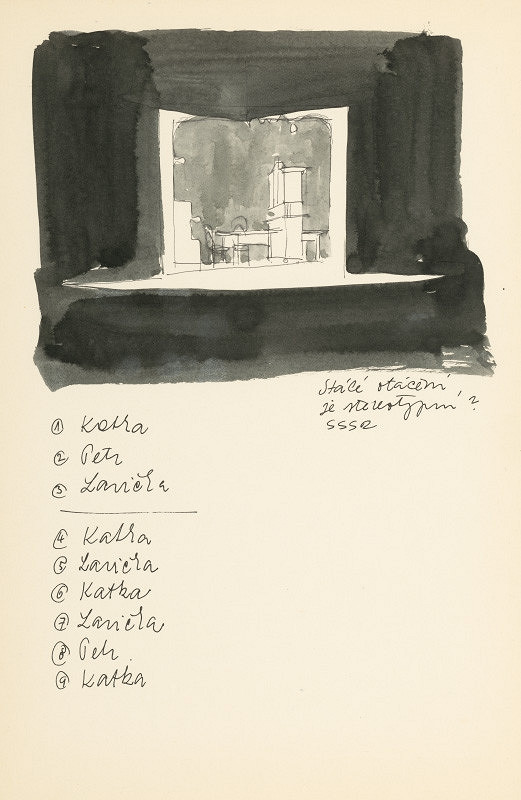 Stálé otáčení
je stereotypní?
SSSR
① Katka
② Petr
③ Lavička
④ Katka
⑤ Lavička
⑥ Katka
⑦ Lavička
⑧ Petr
⑨ Katka